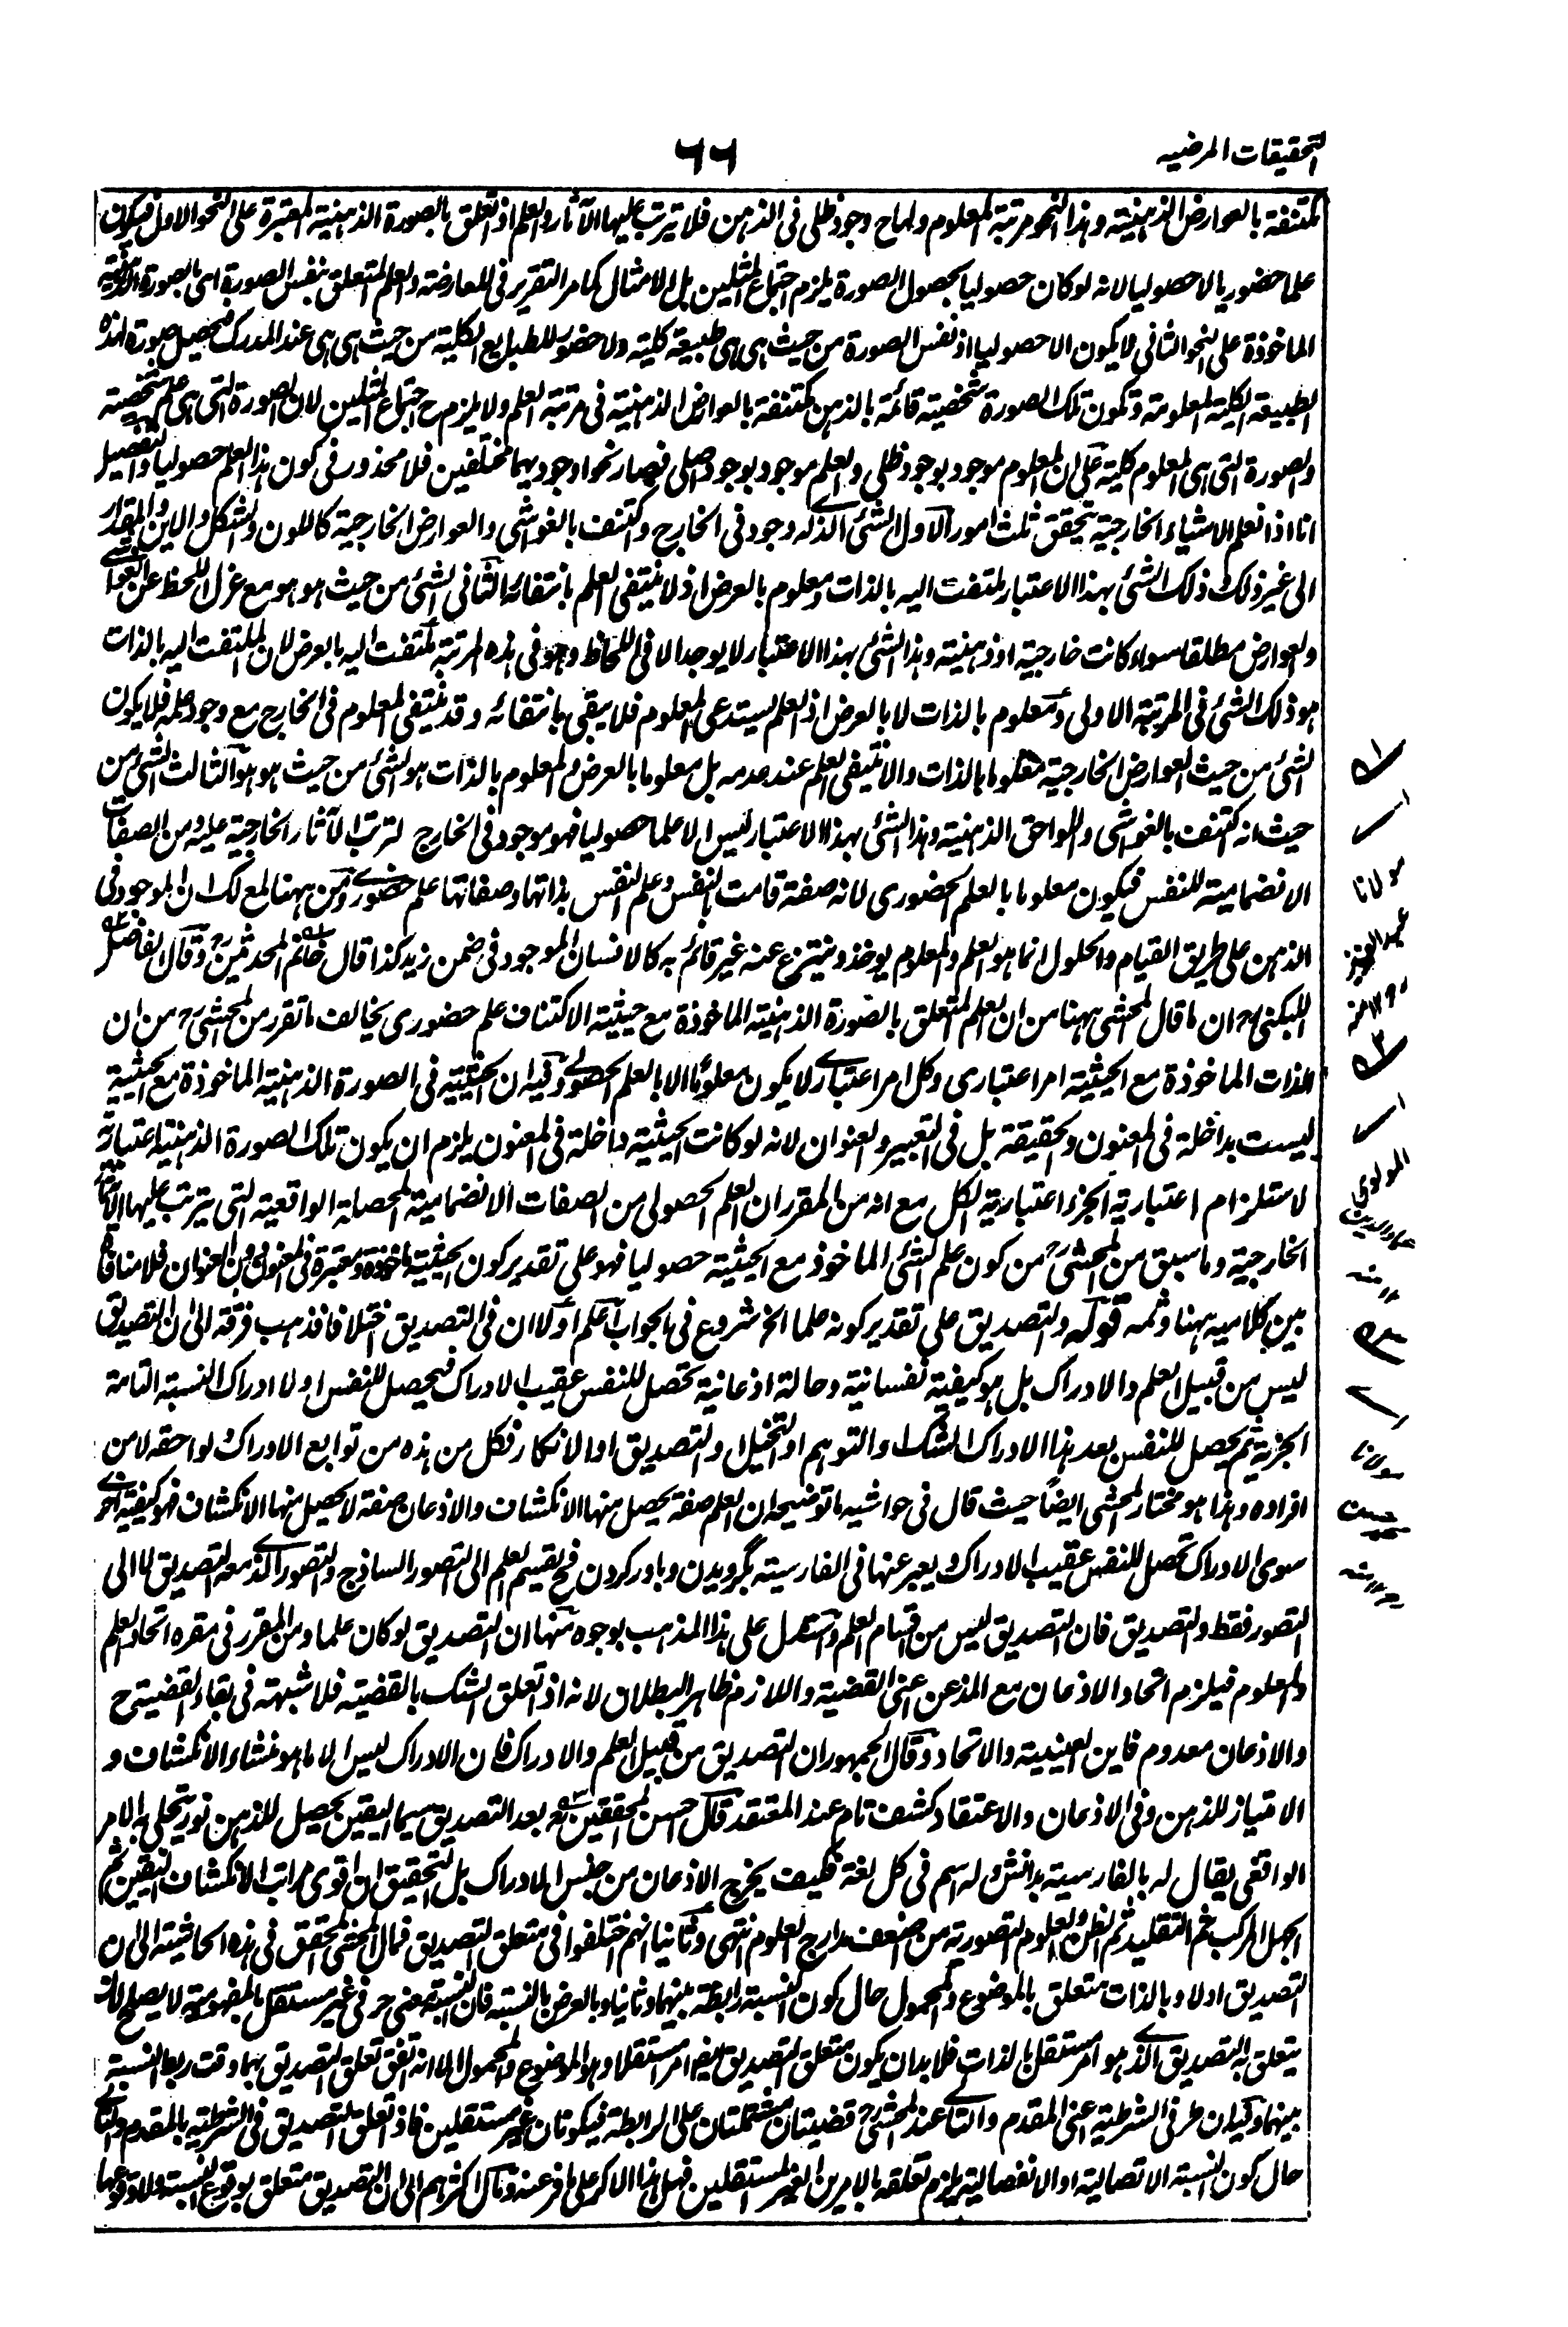 التحقيقات المرضيه
٦٦
المكتنفة بالعوارض الذهنية وهذا النحو مرتبة المعلوم ولها ح وجود ظلي في الذهن فلا تترتب عليها الآثار والعلم اذا تعلق بالصورة الذهنية المعتبرة على النحو الاول فيكون
علما حضوريا لا حصوليا لانه لو كان حصوليا بحصول الصورة يلزم اجتماع المثلين بل الامثال كما مر التقرير في المعارضة والعلم المتعلق بنفس الصورة اى بالصورة الذهنية
الماخوذة على النحو الثاني لا يكون الا حصوليا اذ نفس الصورة من حيث هي هي طبيعة كلية ولا حضور للطبايع الكلية من حيث هي هي عند المدرك فتحصيل صورة هذه
الطبيعة الكلية المعلومة وتكون تلك الصورة شخصية قائمة بالذهن مكتنفة بالعوارض الذهنية في مرتبة العلم ولا يلزم ح اجتماع المثلين لان الصورة التي هي علم شخصية
والصورة التي هي المعلوم كلية على ان المعلوم موجود بوجود ظلي والعلم موجود بوجود اصلي فصار نحوا وجوديهما مختلفين فلا محذور في كون هذا العلم حصوليا والتفصيل
انا اذا نعلم الاشياء الخارجية يتحقق ثلث امور الاول الشئ الذي له وجود في الخارج ومكتنف بالغواشي والعوارض الخارجية كاللون والشكل والاين والمقدار
الى غير ذلك وذلك الشئ بهذا الاعتبار ملتفت اليه بالذات ومعلوم بالعرض اذ لا ينتفى العلم بانتفائه الثاني الشئ من حيث هو هو مع عزل اللحظ عن الغواشي
والعوارض مطلقا سواء كانت خارجية او ذهنية وهذا الشئ بهذا الاعتبار لا يوجد الا في اللحاظ وهو في هذه المرتبة ملتفت اليه بالعرض لان الملتفت اليه بالذات
هو ذلك الشئ في المرتبة الاولى ومعلوم بالذات لا بالعرض اذ العلم يستدعى المعلوم فلا يبقى بانتفائه وقد ينتفى المعلوم في الخارج مع وجود علمه فلا يكون
الشئ من حيث العوارض الخارجية معلوما بالذات والا انتفى العلم عند عدمه بل معلوما بالعرض والمعلوم بالذات هو الشئ من حيث هو هو الثالث الشئ من
حيث انه مكتنف بالغواشي واللواحق الذهنية وهذا الشئ بهذا الاعتبار ليس الا علما حصوليا فهو موجود في الخارج لترتب الآثار الخارجية عليه ومن الصفات
الانضمامية للنفس فيكون معلوما بالعلم الحضوري لانه صفة قامت بالنفس وعلم النفس بذاتها وصفاتها علم حضوري ومن ههنا لمع لك ان الموجود في
الذهن على طريق القيام والحلول انما هو العلم والمعلوم يوخذ وينتزع عنه غير قائم به كالانسان الموجود في ضمن زيد كذا قال خاتم المحدثين رح وقال الفاضل
اللبكني رح ان ما قال المحشي ههنا من ان العلم المتعلق بالصورة الذهنية الماخوذة مع حيثية الاكتناف علم حضوري يخالف ما تقرر من المحشي رح من ان
الذات الماخوذة مع الحيثية امر اعتباري وكل امر اعتباري لا يكون معلوما الا بالعلم الحصولي وفيه ان الحيثية في الصورة الذهنية الماخوذة مع الحيثية
ليست بداخلة في المعنون وحقيقة بل في التعبير والعنوان لانه لو كانت الحيثية داخلة في المعنون يلزم ان يكون تلك الصورة الذهنية اعتبارية
لاستلزام اعتبارية الجزء اعتبارية الكل مع انه من المقرر ان العلم الحصولي من الصفات الانضمامية المحصلة الواقعية التي يترتب عليها الآثار
الخارجية وما سبق من المحشي رح من كون علم الشئ الماخوذ مع الحيثية حصوليا فهو على تقدير كون الحيثية ماخوذة ومعتبرة في المعنون دون العنوان فلا منافاة
بين كلاميه ههنا وثمه قوله والتصديق على تقدير كونه علما الخ شروع في الجواب اعلم اولا ان في التصديق اختلافا فذهب فرقة الى ان التصديق
ليس من قبيل العلم والادراك بل هو كيفية نفسانية وحالة اذعانية تحصل للنفس عقيب الادراك فيحصل للنفس اولا ادراك النسبة التامة
الخبرية ثم يحصل للنفس بعد هذا الادراك الشك والتوهم او التخيل والتصديق او الانكار فكل من هذه من توابع الادراك ولواحقه لا من
افراده وهذا هو مختار المحشي ايضا حيث قال في حواشيه ما توضيحه ان العلم صفة يحصل منها الانكشاف والاذعان صفة لا يحصل منها الانكشاف فهو كيفية اخرى
سوى الادراك تحصل للنفس عقيب الادراك ويعبر عنها في الفارسية بگرويدن وباور كردن فح يقسم العلم الى التصور الساذج والتصور الذي معه التصديق لا الى
التصور فقط والتصديق فان التصديق ليس من اقسام العلم واستدل على هذا المذهب بوجوه منها ان التصديق لو كان علما ومن المقرر في مقره اتحاد العلم
والمعلوم فيلزم اتحاد الاذعان مع المذعن اعنى القضية واللازم ظاهر البطلان لانه اذ تعلق الشك بالقضية فلا شبهة في بقاء القضية ح
والاذعان معدوم فاين العينية والاتحاد وقال الجمهور ان التصديق من قبيل العلم والادراك فان الادراك ليس الا ما هو منشاء الانكشاف و
الامتياز للذهن وفى الاذعان والاعتقاد كشف تام عند المعتقد قال حسن المحققين انه بعد التصديق سيما اليقين يحصل للذهن نور يتجلى به الامر
الواقعي يقال له بالفارسية بدانش وله اسم في كل لغة فكيف يخرج الاذعان من جنس الادراك بل التحقيق ان اقوى مراتب الانكشاف اليقين ثم
الجهل المركب ثم التقليد ثم الظن والعلوم التصورية من اضعف مدارج العلوم انتهى وثانيا انهم اختلفوا في متعلق التصديق فمال المحشي المحقق في هذه الحاشية الى ان
التصديق اولا وبالذات متعلق بالموضوع والمحمول حال كون النسبة رابطة بينهما وثانيا وبالعرض بالنسبة فان النسبة معنى حرفي غير مستقل بالمفهومية لا يصلح لان
يتعلق به التصديق الذي هو امر مستقل بالذات فلا بد ان يكون متعلق التصديق ايضا امرا مستقلا وهو الموضوع والمحمول الا انه اتفق تعلق التصديق بهما وقت ربط النسبة
بينهما وقيل ان طرفي الشرطية اعنى المقدم والتالي عند المحشي رح قضيتان مشتملتان على الرابطة فيكونان غير مستقلين فاذ تعلق التصديق في الشرطية بالمقدم والتالي
حال كون النسبة الاتصالية او الانفصالية يلزم تعلقه بالامرين الغير المستقلين فهل هذا الا كر على ما فر عنه ومال اكثرهم الى ان التصديق متعلق بوقوع النسبة ولا وقوعها
مولانا
عبد العزيز
المولوي
عماد الدين
مولانا
حسن